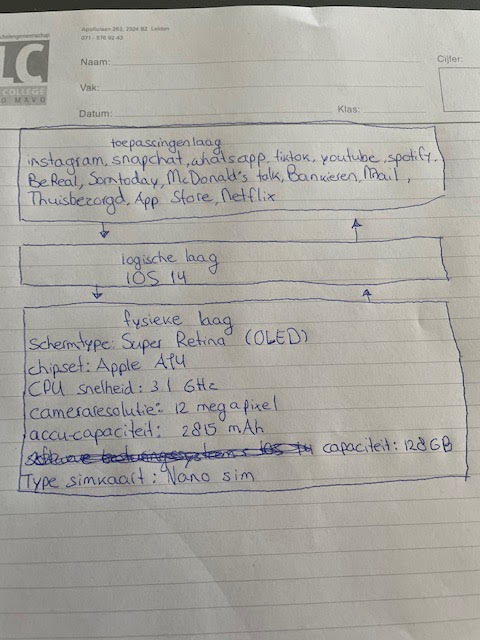 Apollolaan 262, 2324 BZ Leiden
071 - 576 92 43
LC
COLLEGE
O MAVO
Naam:
Cijfer:
Vak:
Datum:
Klas:
toepassingenlaag
instagram, snapchat, whatsapp, tiktok, youtube, spotify,
BeReal, Somtoday, McDonald's, talk, Bankieren, Mail,
Thuisbezorgd, App Store, Netflix
logische laag
IOS 14
fysieke laag
Schermtype: Super Retina (OLED)
chipset: Apple A14
CPU snelheid: 3.1 GHz
cameraresolutie: 12 megapixel
accu-capaciteit: 2815 mAh
capaciteit: 128 GB
Type simkaart: Nano sim